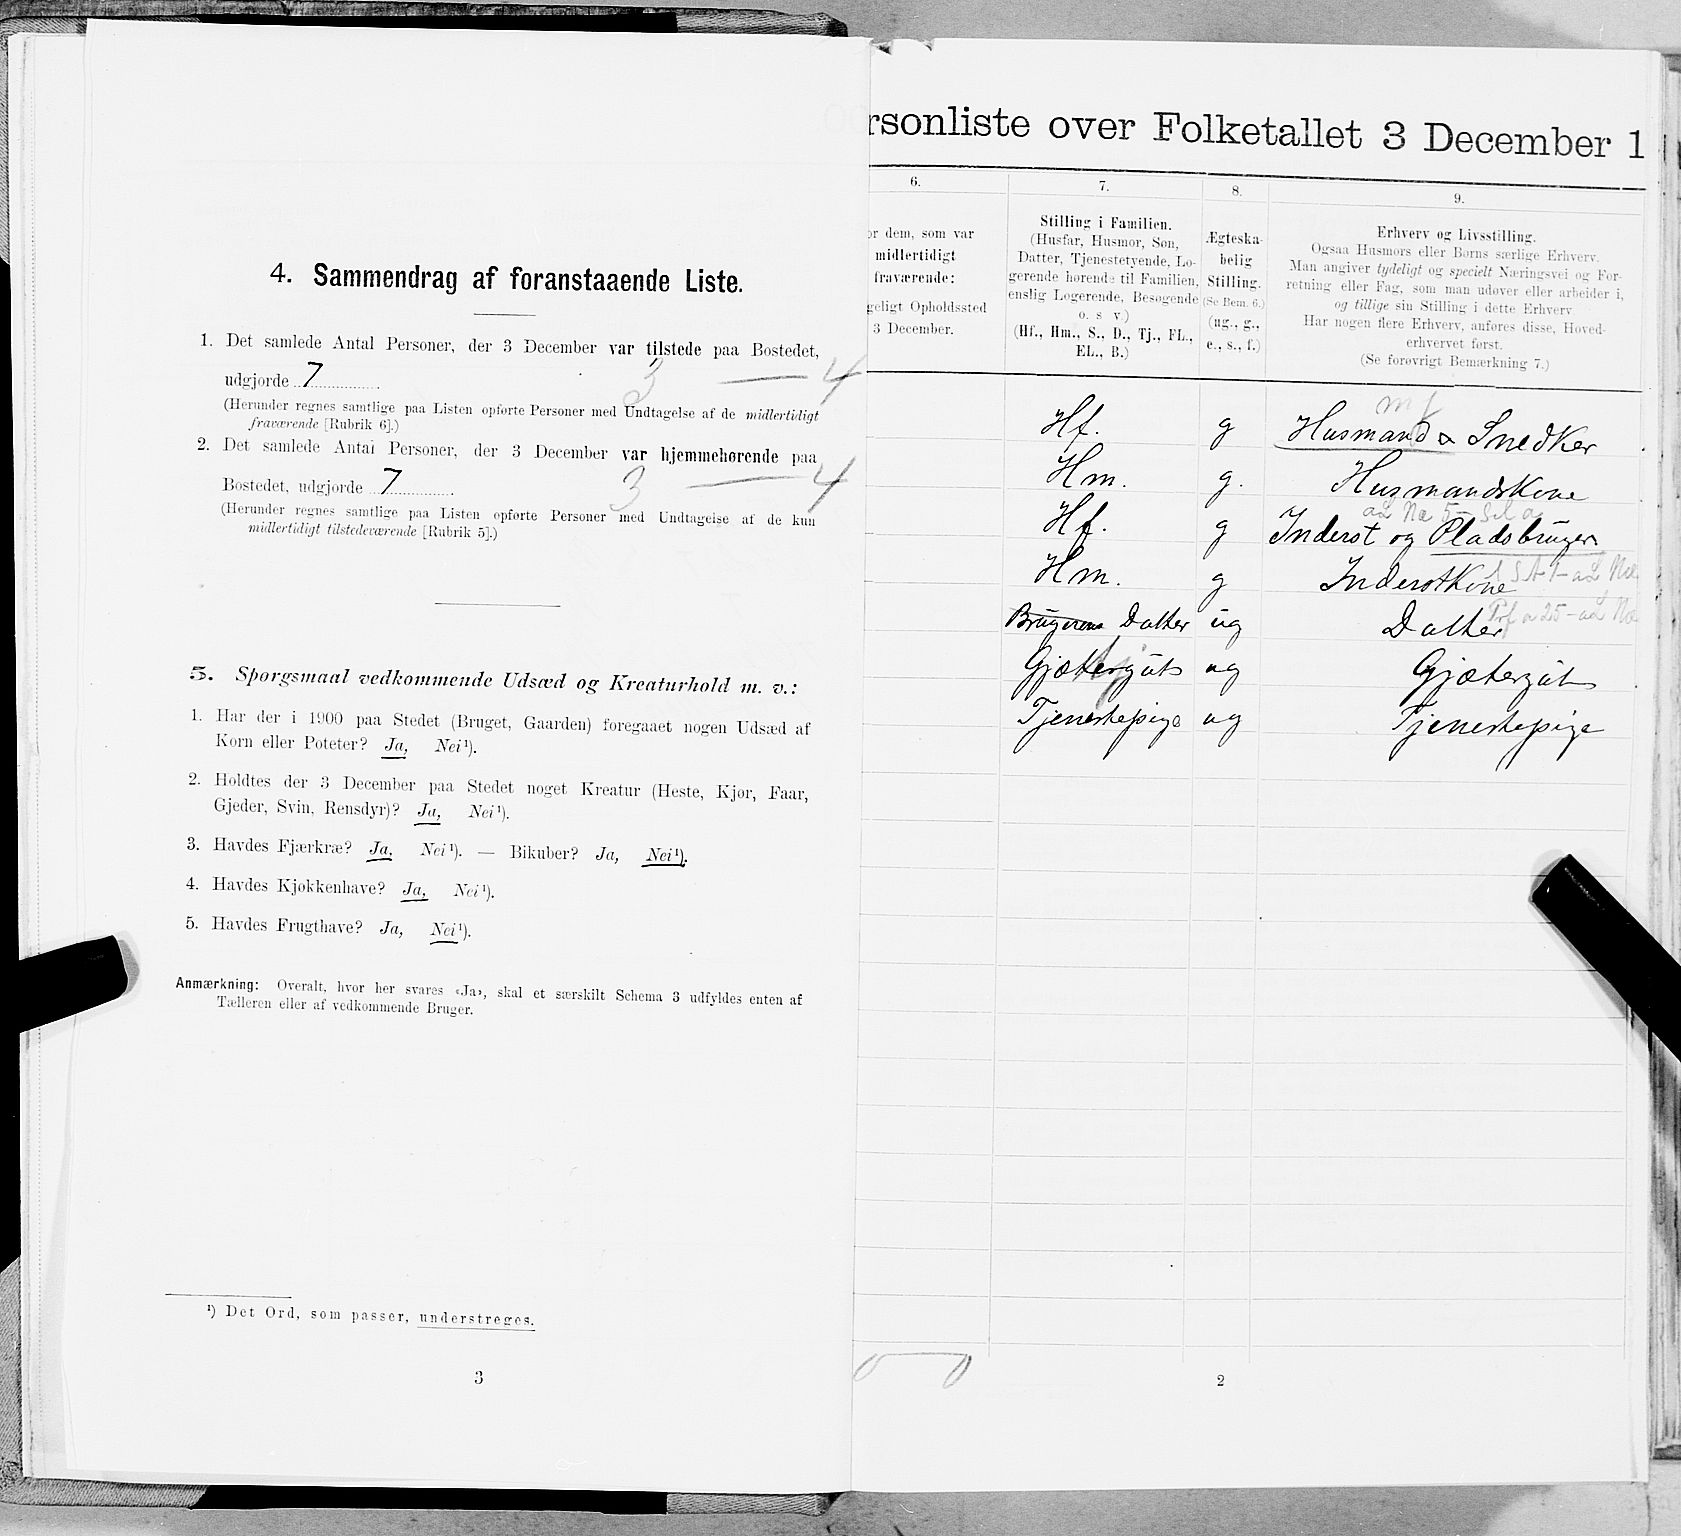 4. Sammendrag af foranstaaende Liste.
1. Det samlede Antal Personer, der 3 December var tilstede paa Bostedet,
udgjorde 7 3 — 4
(Herunder regnes samtlige paa Listen opførte Personer med Undtagelse af de midlertidigt
fraværende [Rubrik 6].)
2. Det samlede Antal Personer, der 3 December var hjemmehørende paa
Bostedet, udgjorde 7 3 — 4
(Herunder regnes samtlige paa Listen opførte Personer med Undtagelse af de kun
midlertidigt tilstedeværende [Rubrik 5].)
5. Spørgsmaal vedkommende Udsæd og Kreaturhold m. v.:
1. Har der i 1900 paa Stedet (Bruget, Gaarden) foregaaet nogen Udsæd af
Korn eller Poteter? Ja, Nei¹).
2. Holdtes der 3 December paa Stedet noget Kreatur (Heste, Kjør, Faar,
Gjeder, Svin, Rensdyr)? Ja, Nei¹).
3. Havdes Fjærkræ? Ja, Nei¹). — Bikuber? Ja, Nei¹).
4. Havdes Kjøkkenhave? Ja, Nei¹).
5. Havdes Frugthave? Ja, Nei¹).
Anmærkning: Overalt, hvor her svares «Ja», skal et særskilt Schema 3 udfyldes enten af
Tælleren eller af vedkommende Bruger.
¹) Det Ord, som passer, understreges.
3
rsonliste over Folketallet 3 December 1
6. 7. 8. 9.
or dem, som var
midlertidigt
fraværende:
geligt Opholdssted
3 December.
Stilling i Familien.
(Husfar, Husmor, Søn,
Datter, Tjenestetyende, Lo-
gerende hørende til Familien,
enslig Logerende, Besøgende
o. s v.)
(Hf., Hm., S., D., Tj., FL.,
EL., B.)
Ægteska-
belig
Stilling.
(Se Bem. 6.)
(ug., g.,
e., s., f.)
Erhverv og Livsstilling.
Ogsaa Husmors eller Børns særlige Erhverv.
Man angiver tydeligt og specielt Næringsvei og For-
retning eller Fag, som man udøver eller arbeider i,
og tillige sin Stilling i dette Erhverv
Har nogen flere Erhverv, anføres disse, Hoved-
erhvervet først.
(Se forøvrigt Bemærkning 7.)
Hf. g Husmand & Snedker
Hm. g. Husmandskone
Hf. g Inderst og Pladsbruger
Hm. g Inderstkone
Brugerens Datter ug Datter
Gjætergut ug Gjætergut
Tjenestepige ug Tjenestepige
2